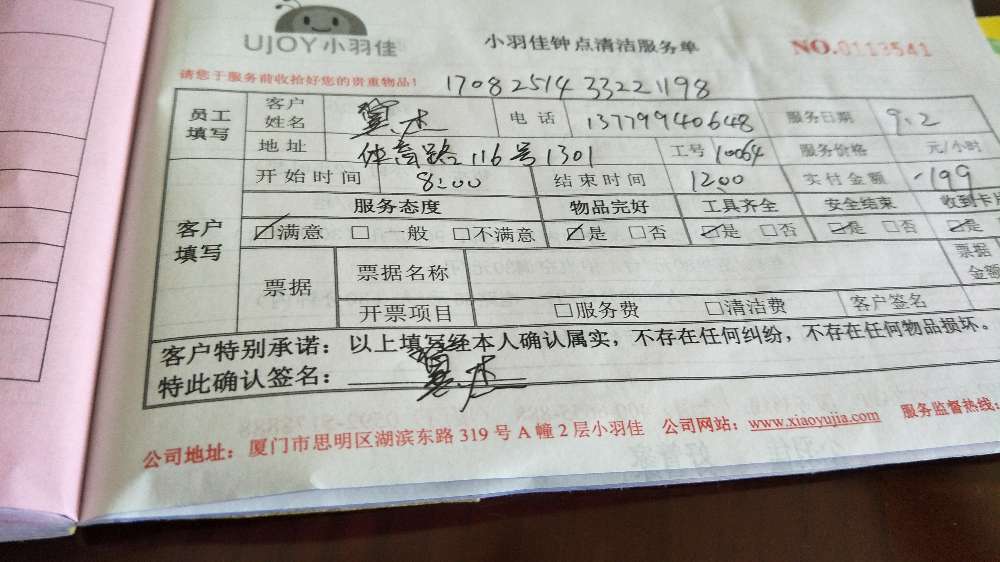 UJOY小羽佳 小羽佳钟点清洁服务单 NO.0113541
请您于服务前收拾好您的贵重物品! 1708251433221198
员工填写 客户姓名 电话 13779940648 服务日期 9.2
地址 体育路116号1301 工号 10064 服务价格 元/小时
客户填写 开始时间 8:00 结束时间 1200 实付金额 -199
服务态度 物品完好 工具齐全 安全结束 收到卡片
☑满意 □一般 □不满意 ☑是 □否 ☑是 □否 ☑是 □否 ☑是
票据 票据名称 票据金额
开票项目 □服务费 □清洁费 客户签名
客户特别承诺:以上填写经本人确认属实,不存在任何纠纷,不存在任何物品损坏。
特此确认签名:
公司地址:厦门市思明区湖滨东路319号A幢2层小羽佳 公司网站:www.xiaoyujia.com 服务监督热线: